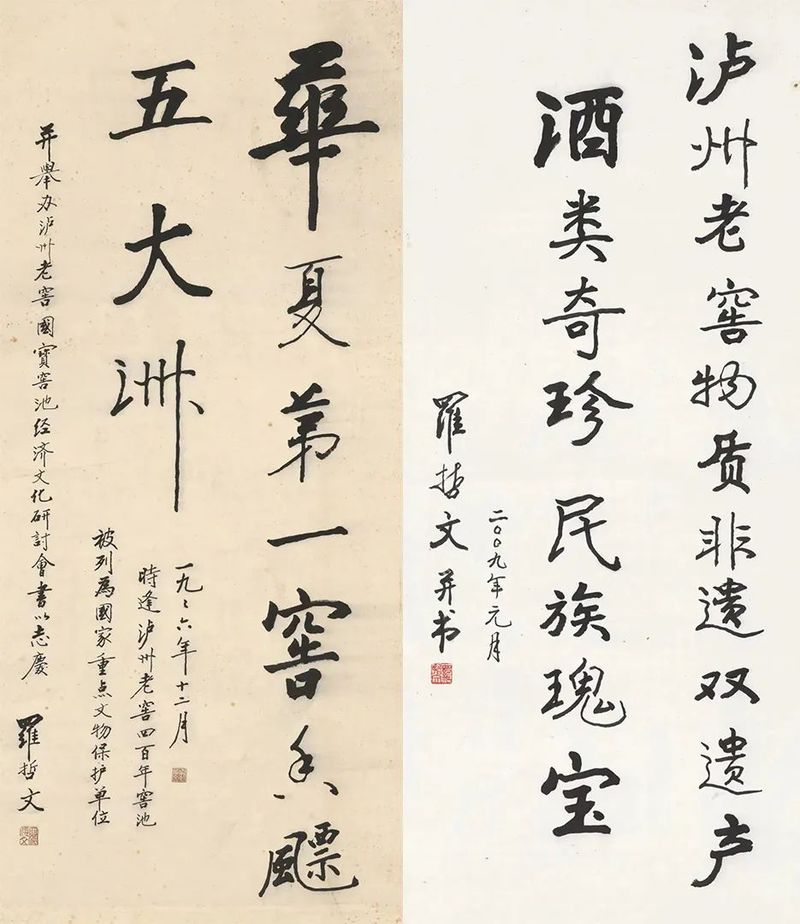 華夏第一窖香飃
五大洲
一九〻六年十二月
時逢泸州老窖四百年窖池
被列為國家重点文物保护单位
并舉办泸州老窖國寳窖池经济文化研討會書以志慶
羅哲文
泸州老窖物质非遗双遗产
酒类奇珍民族瑰宝
二〇〇九年元月
羅哲文并书